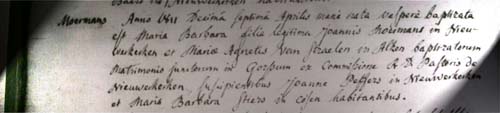 Moermans Anno Ut Decima Septima Aprilis mane nata vesperè baptizata
est Maria Barbara filia legitima Joannis Moermans in Nieuw-
werkerken et Mariæ Agnetis Van Straelen ex Alken baptizatorum
Matrimonio junctorum in Gorssum ex Commissione R. D. Pastoris de
Nieuwerkerken, suscipientibus Joanne Peffers in Nieuwerkerken
et Maria Barbara in cosen habitantibus.